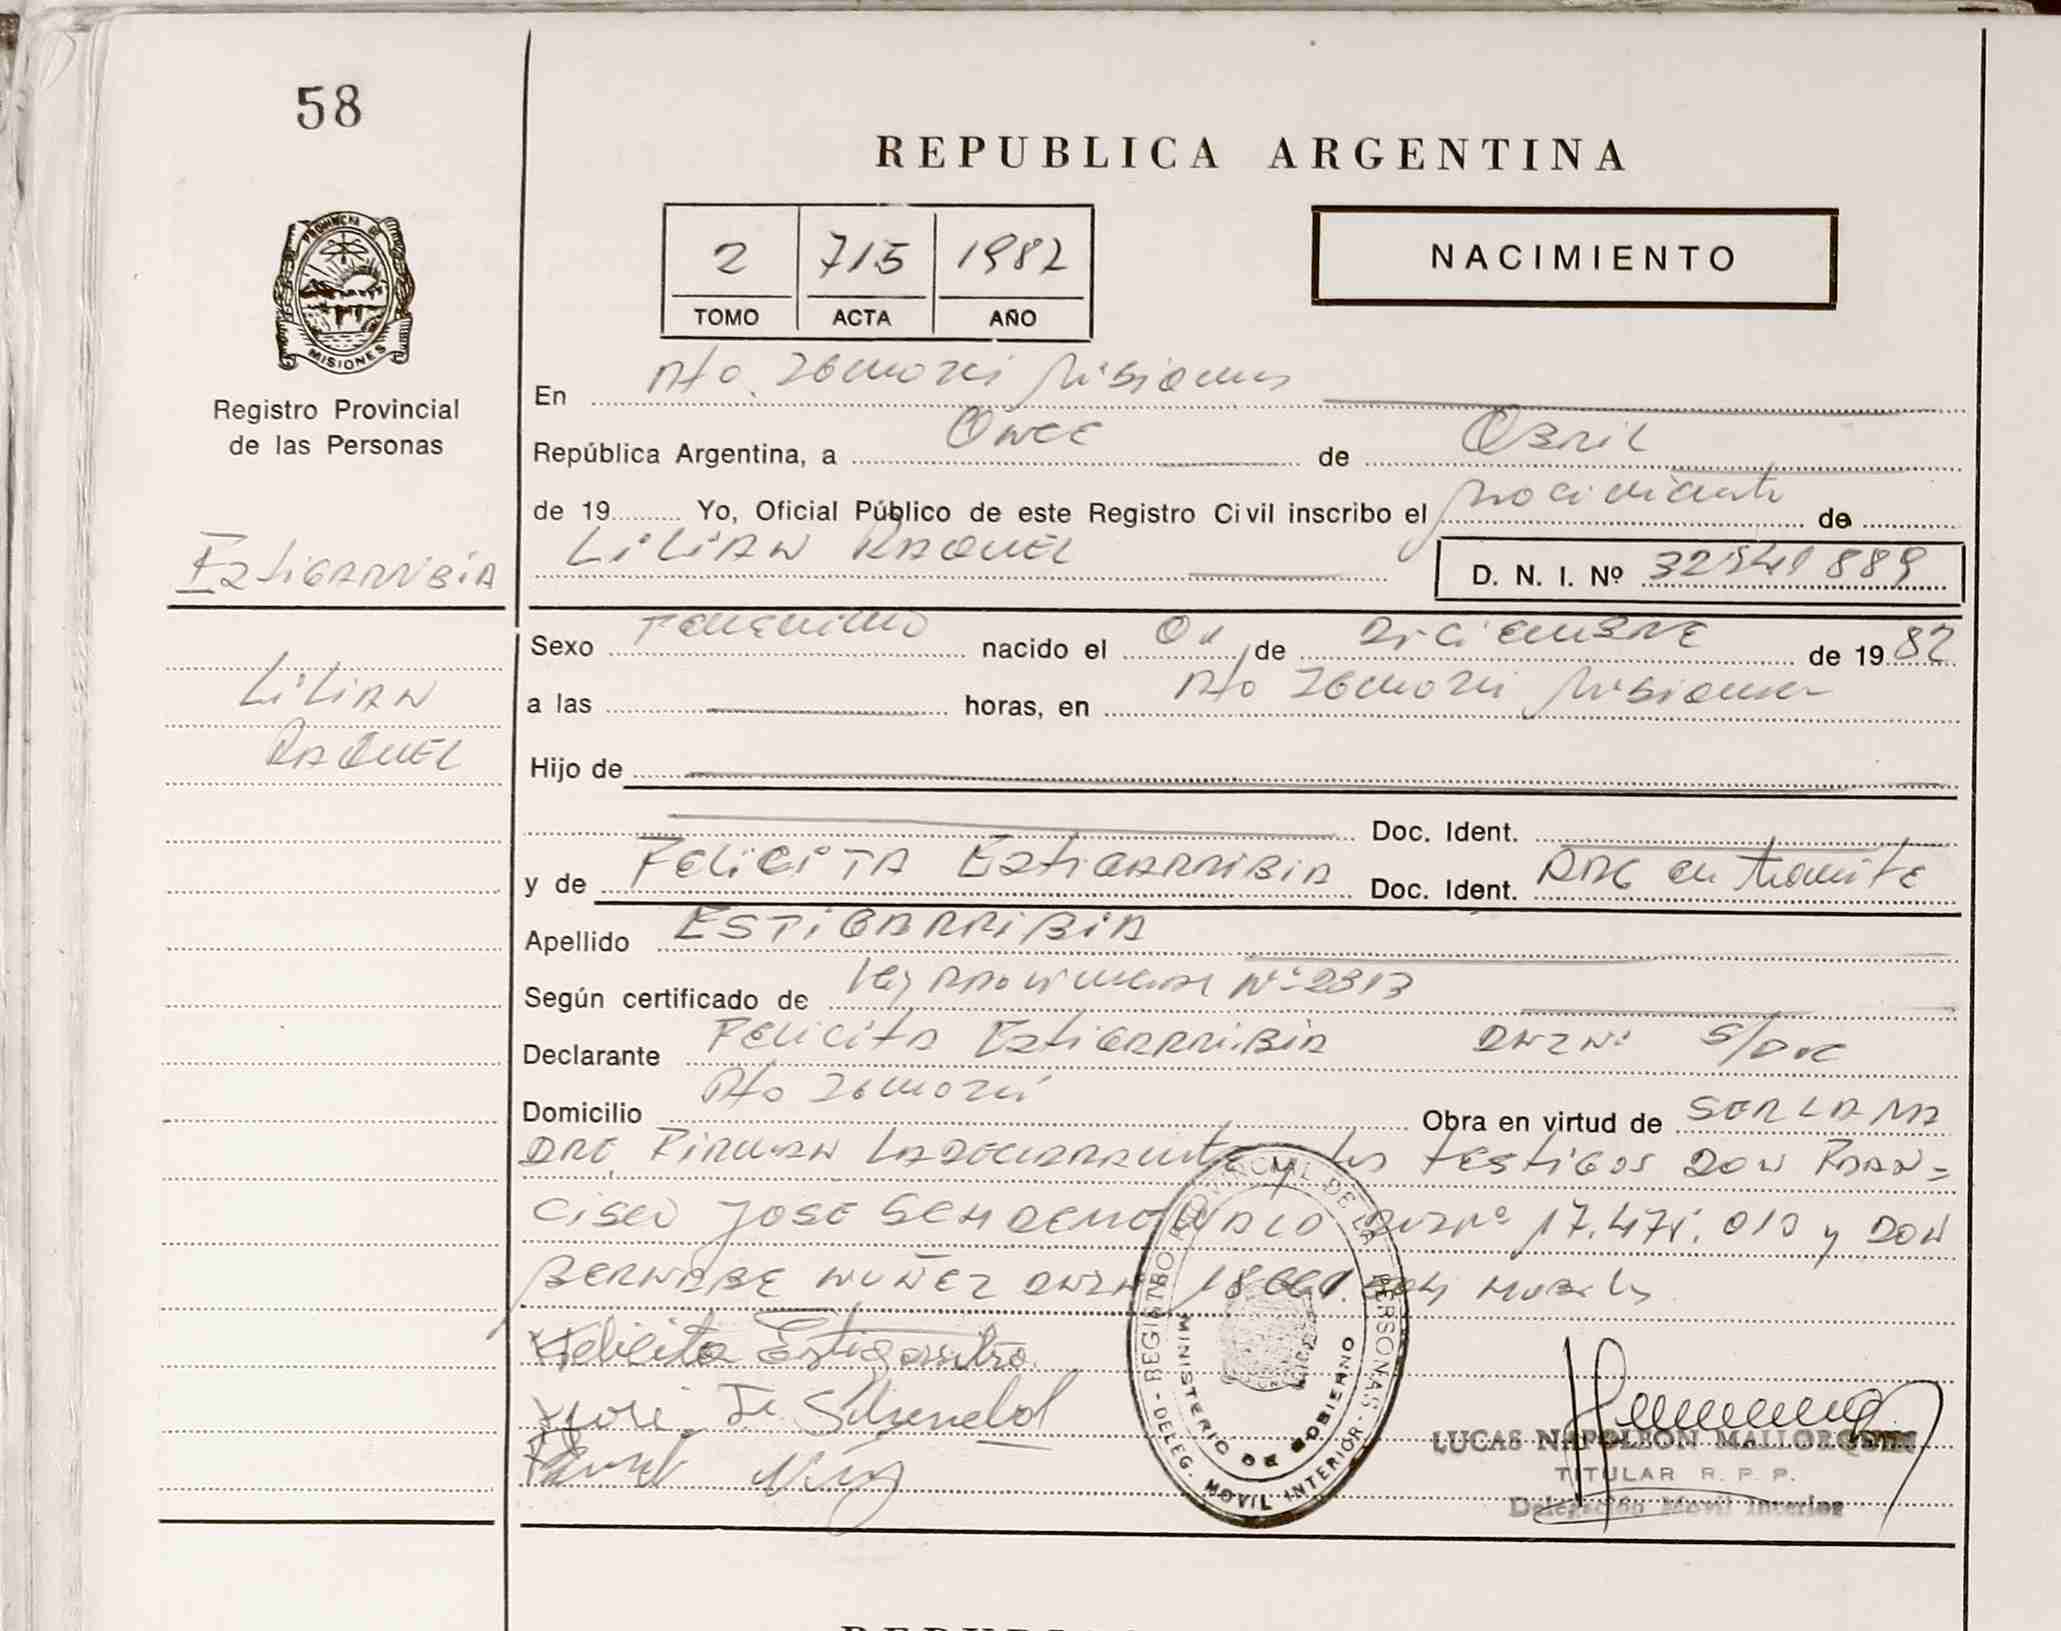 58
REPUBLICA ARGENTINA
2 715 1982
TOMO ACTA AÑO
NACIMIENTO
PROVINCIA DE
MISIONES
Registro Provincial
de las Personas
En Pto. Misiones
República Argentina, a Once de Abril
de 19 Yo, Oficial Público de este Registro Civil inscribo el nacimiento de
Estigarribia
LILIAN RAQUEL
D. N. I. Nº 889
Sexo Femenino nacido el de Diciembre de 1982
LILIAN
RAQUEL
a las horas, en Pto Misiones
Hijo de
Doc. Ident.
y de FELICITA Estigarribia Doc. Ident. en tramite
Apellido ESTIGARRIBIA
Según certificado de Ley Provincial Nº 2313
Declarante Felicita Estigarribia S/Doc
Domicilio Pto
Obra en virtud de SER LA MA
DRE FIRMAN LA DECLARANTE y los TESTIGOS DON FRAN=
CISCO JOSE 17.475.010 y DON
BERNABE NUÑEZ
Felicita Estigarribia
LUCAS NAPOLEON MALLORQUIN
TITULAR R. P. P.
Delegación Movil Interior
REGISTRO PROVINCIAL DE LA PERSONAS - DELEG. MOVIL INTERIOR -
MINISTERIO DE GOBIERNO